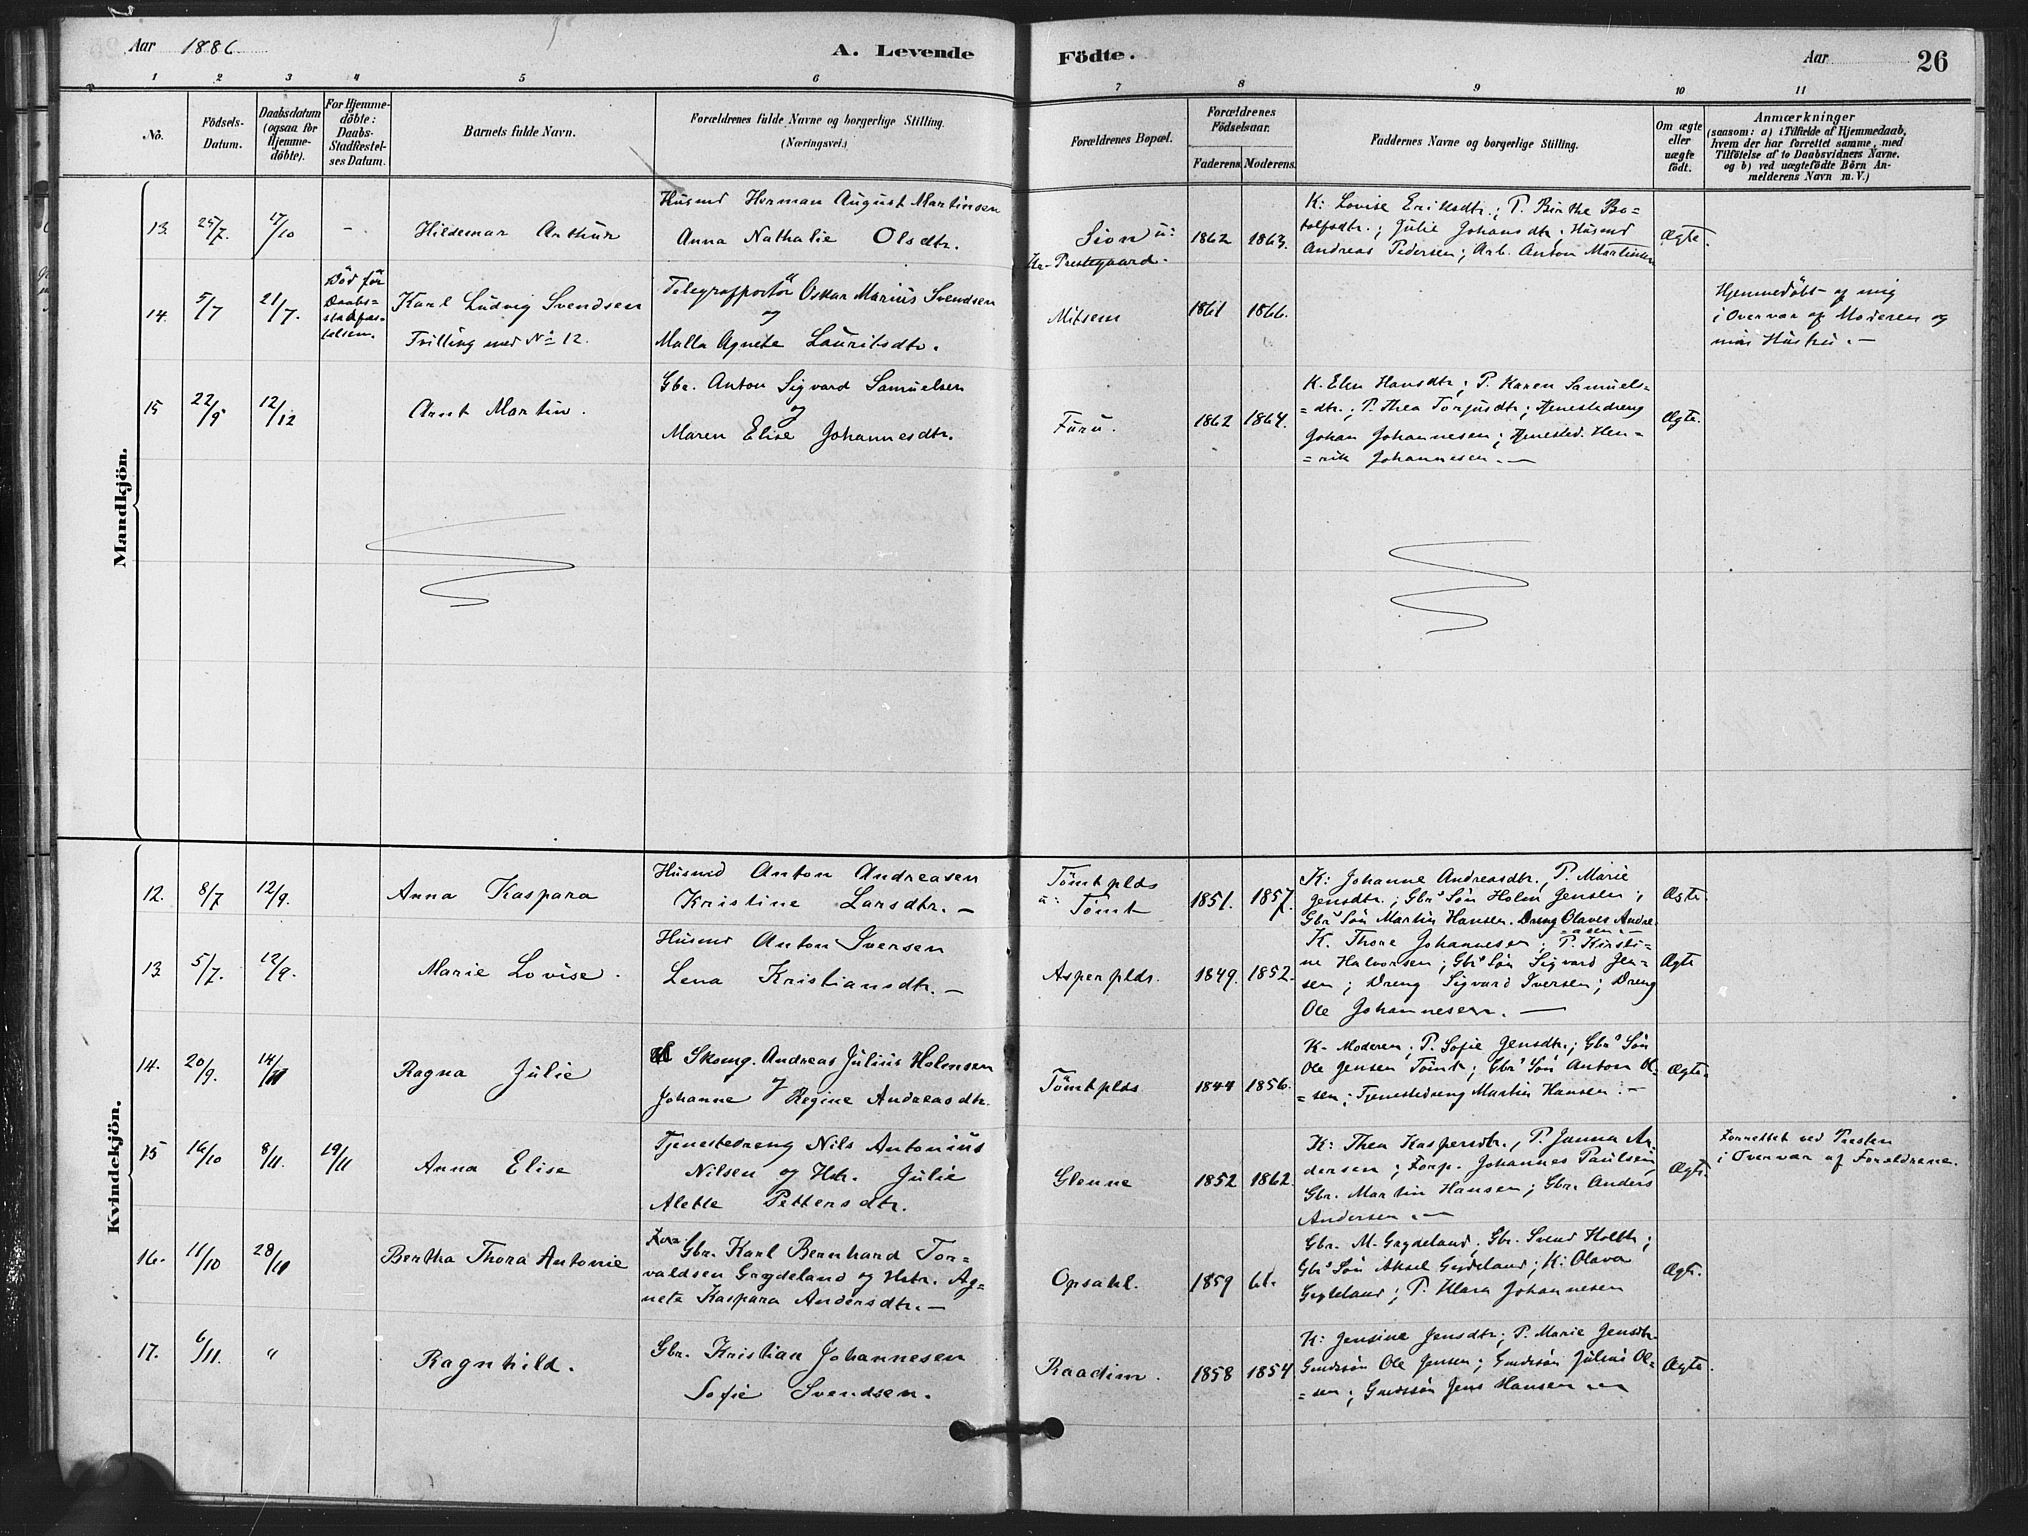 Aar 1886
A. Levende
Födte.
Aar
26
1 2 3 4 5 6 7 8 9 10 11
No.
Födsels-
Datum.
Daabsdatum
(ogsaa for
Hjemme-
döbte).
For Hjemme-
döbte:
Daabs-
Stadfæstel-
ses Datum.
Barnets fulde Navn.
Forældrenes fulde Navne og borgerlige Stilling.
(Næringsvei.)
Forældrenes Bopæl.
Forældrenes
Födselsaar.
Faderens.
Moderens.
Faddernes Navne og borgerlige Stilling.
Om ægte
eller
uægte
födt.
Anmærkninger
(saasom: a) i Tilfælde af Hjemmedaab,
hvem der har forrettet samme, med
Tilföielse af to Daabsvidners Navne.
og b) ved uægtefödte Börn An-
melderens Navn m. V.)
Mandkjön.
13. 25/7. 17/10 -. Hildemar Arthur
Husmd Herman August Martinsen
Anna Nathalie Olsdtr.
Sion u:
Præstegaard.
1862 1863.
K: Lovise Eriksdtr.; P. Birthe Bo-
tolfsdtr.; Julie Johansdtr. Husmd
Andreas Pedersen; Arb. Anton Martinsen
Ægte.
14. 5/7 21/7.
Död för
Daabs-
stadfæs-
telsen.
Karl Ludvig Svendsen
Trilling med No 12.
Telegrafportör Oskar Marius Svendsen
og
Malla Agnete Lauritsdtr.
Mitsem
1861 1866.
Hjemmedöbt af mig
i Overvær af Moderen og
min Hustru. -
15 22/9 12/12
Arnt Martin.
Gbr. Anton Sigvard Samuelsen
og
Maren Elise Johannesdtr.
Furu.
1862 1864.
K. Elen Hansdtr; P. Karen Samuels-
=dtr.; P. Thea Torjusdtr; Tjenestedreng
Johan Johannesen; Tjenested. Hen-
=rik Johannesen. -
Ægte.
Kvindekjön.
12. 8/7 12/9.
Anna Kaspara
Husmd Anton Andreasen
Kristine Larsdtr. -
Tömtplds
u: Tömt
1851. 1857.
K: Johanne Andreasdtr., P. Marie
Jensdtr.; Gbrs Sön Holm Jensen;
Gbrs Sön Martin Hansen. Dreng Olaves Andre-
=asen. -
Ægte.
13. 5/7. 12/9.
Marie Lovise.
Husmd Anton Iversen
Lena Kristiansdtr. -
Asperplds.
1849. 1852.
K. Thore Johannesen; P. Kirsti-
ne Halvorsen; Gbrs Sön Sigvard Jen-
sen; Dreng Sigvard Iversen; Dreng
Ole Johannesen. -
Ægte
14. 20/9. 14/11
Ragna Julie
Skomg. Andreas Julius Holmsen
Johanne Regine Andreasdtr.
Tömtplds
1844 1856.
K- Moderen; P. Sofie Jensdtr.; Gbrs Sön
Ole Jensen Tömt; Gbrs Sön Anton Ol-
=sen; Tjenestedreng Martin Hansen. -
Ægte.
15 16/10 8/11. 19/11
Anna Elise
Tjenestedreng Nils Antonius
Nilsen og Hstr. Julie
Alette Pettersdtr.
Glenne
1852 1862.
K: Thea Kaspersdtr., P. Janna An-
dersen; Forp. Johannes Paulsen,
Gbr. Martin Hansen; Gbr. Anders
Andersen. -
Ægte.
Forrettet ved Presten
i Overvær af Forældrene.
16. 11/10 28/11
Bertha Thora Antonie
Gbr. Karl Bernhard Tor-
valdsen Grydeland og Hstr. Ag-
nete Kaspara Andersdtr. -
Opsahl.
1859 61.
Gbr. M. Grydeland, Gbr. Svend Holth;
Gbrs Sön Aksel Grydeland; K: Olava
Grydeland; P. Klara Johannesen
Ægte.
17. 6/11. "
Ragnhild.
Gbr. Kristian Johannesen
Sofie Svendsen.
Raadim.
1858 1854
K: Jensine Jensdtr; P. Marie Jensdtr.
Grdssön Ole Jensen; Grdssön Julius Ol-
=sen; Grdssön Jens Hansen. -
Ægte.